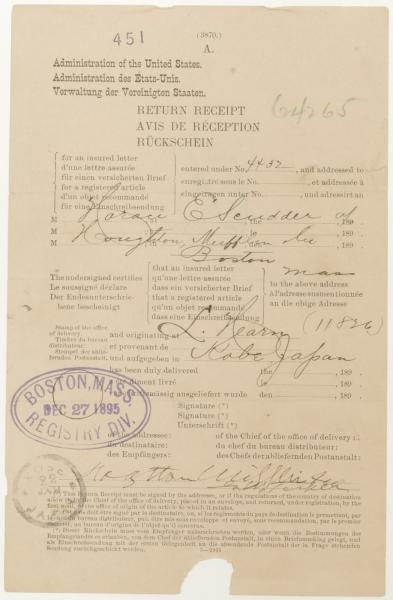 451
(3870.)
A.
Administration of the United States.
Administration des États-Unis.
Verwaltung der Vereinigten Staaten.
64265
RETURN RECEIPT
AVIS DE RÉCEPTION
RÜCKSCHEIN
for an insured letter
d'une lettre assurée
für einen versicherten Brief
for a registered article
d'un objet recommandé
für eine Einschreibsendung
entered under No. 4452, and addressed to
enregistré sous le No. , et adressée à
eingetragen unter No. , und adressirt an
M Horace E Scudder of , the 189 .
M Houghton Mifflin , le 189 .
M Boston , 189 .
Mass
The undersigned certifies
Le soussigné déclare
Der Endesunterschrie-
bene bescheinigt
that an insured letter
qu'une lettre assurée
dass ein versicherter Brief
that a registered article
qu'un objet recommandé
dass eine Einschreibsendung
to the above address
à l'adresse susmentionnée
an die obige Adresse
L. Hearn (11826)
Stamp of the office
of delivery.
Timbre du bureau
distributeur.
Stempel der ablie-
fernden Postanstalt.
and originating at
et provenant de
und aufgegeben in
Kobe Japan
has been duly delivered the , 189 .
dûment livré le , 189 .
ausgeliefert wurde den , 189 .
BOSTON, MASS.
DEC 27 1895
REGISTRY DIV.
Signature (*)
Signature (*)
Unterschrift (*)
of the addressee:
du destinataire:
des Empfängers:
of the Chief of the office of delivery:
du chef du bureau distributeur:
des Chefs der abliefernden Postanstalt:
Houghton Mifflin
JAPAN
(*) This Return Receipt must be signed by the addressee, or if the regulations of the country of destination
allow it, by the Chief of the office of delivery, placed in an envelope, and returned, under registration, by the
first mail, to the office of origin of the article to which it relates.
doit être signé par le destinataire, ou, si les règlements du pays de destination le permettent, par
le bureau distributeur, puis être mis sous enveloppe et renvoyé, sous recommandation, par le premier
courrier, au bureau d'origine de l'objet qu'il concerne.
(*) Dieser Rückschein muss vom Empfänger unterschrieben werden, oder wenn die Bestimmungen des
Empfangslandes es erlauben, von dem Chef der abliefernden Postanstalt, in einen Briefumschlag gelegt, und
als Einschreibsendung mit der ersten Gelegenheit an die absendende Postanstalt der in Frage stehenden
Sendung zurückgeschickt werden.